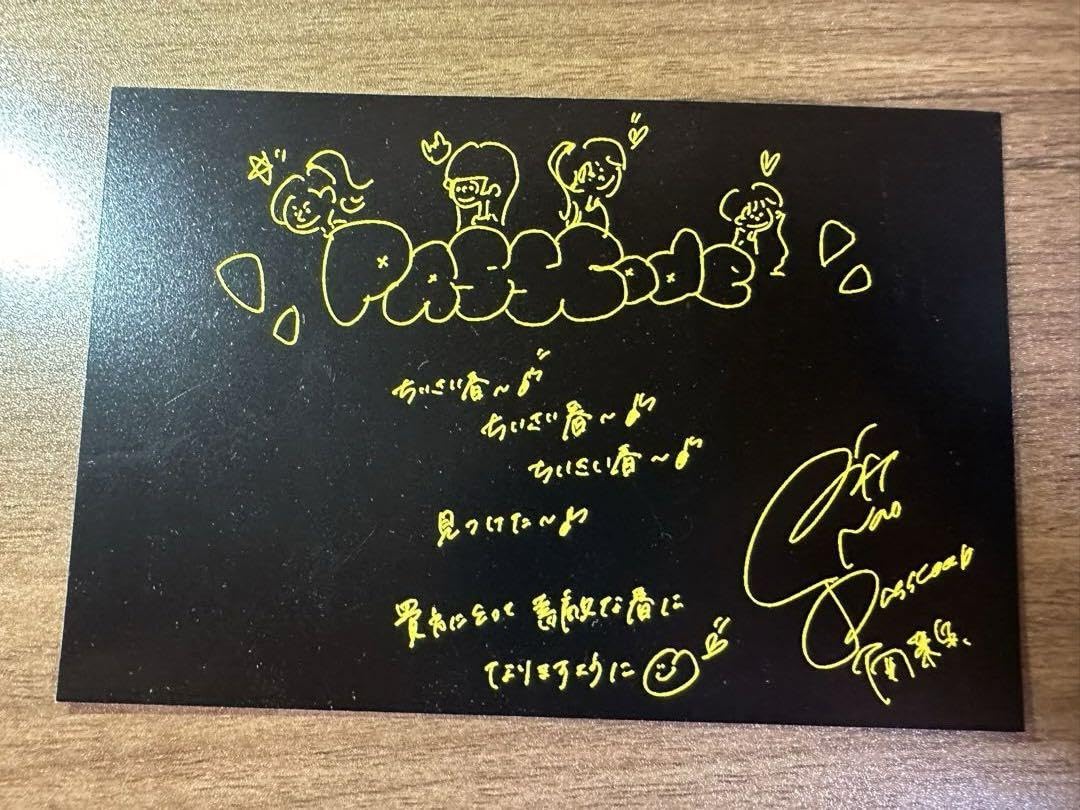 PASSCode
ちいさい春〜♪
ちいさい春〜♪
ちいさい春〜♪
見つけた〜♪
貴方にとって素敵な春に
なりますように
Nao
Passcode
南菜生